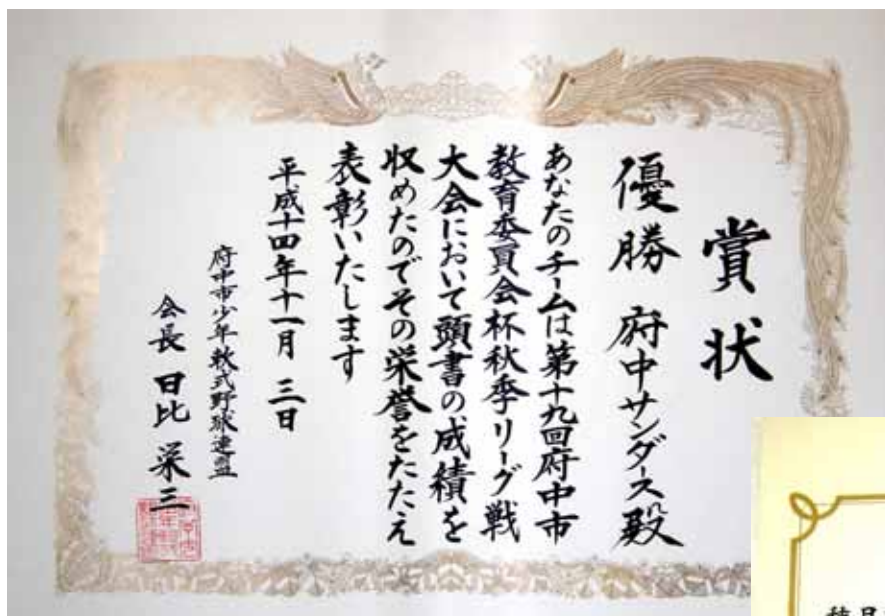 賞状
優勝 府中サンダース殿
あなたのチームは第十九回府中市
教育委員会杯秋季リーグ戦
大会において頭書の成績を
収めたのでその栄誉をたたえ
表彰いたします
平成十四年十一月三日
府中市少年軟式野球連盟
会長 日比栄三